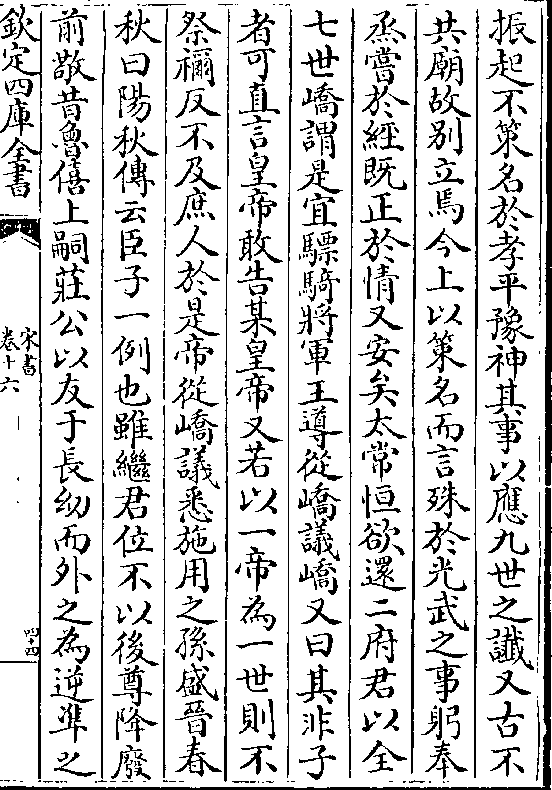 振起不策名於孝平豫神其事以應九世之讖又古不
共廟故别立焉今上以策名而言殊於光武之事躬奉
烝嘗於經既正於情又安矣太常恒欲還二府君以全
七世嶠謂是宜驃騎將軍王導從嶠議嶠又曰其非子
者可直言皇帝敢告某皇帝又若以一帝為一世則不
祭禰反不及庶人於是帝從嶠議悉施用之孫盛晉春
秋曰陽秋傳云臣子一例也雖繼君位不以後尊降廢
前敬昔魯僖上嗣莊公以友于長幼而外之為逆準之
欽定四庫全書
宋書
卷十六
四十四